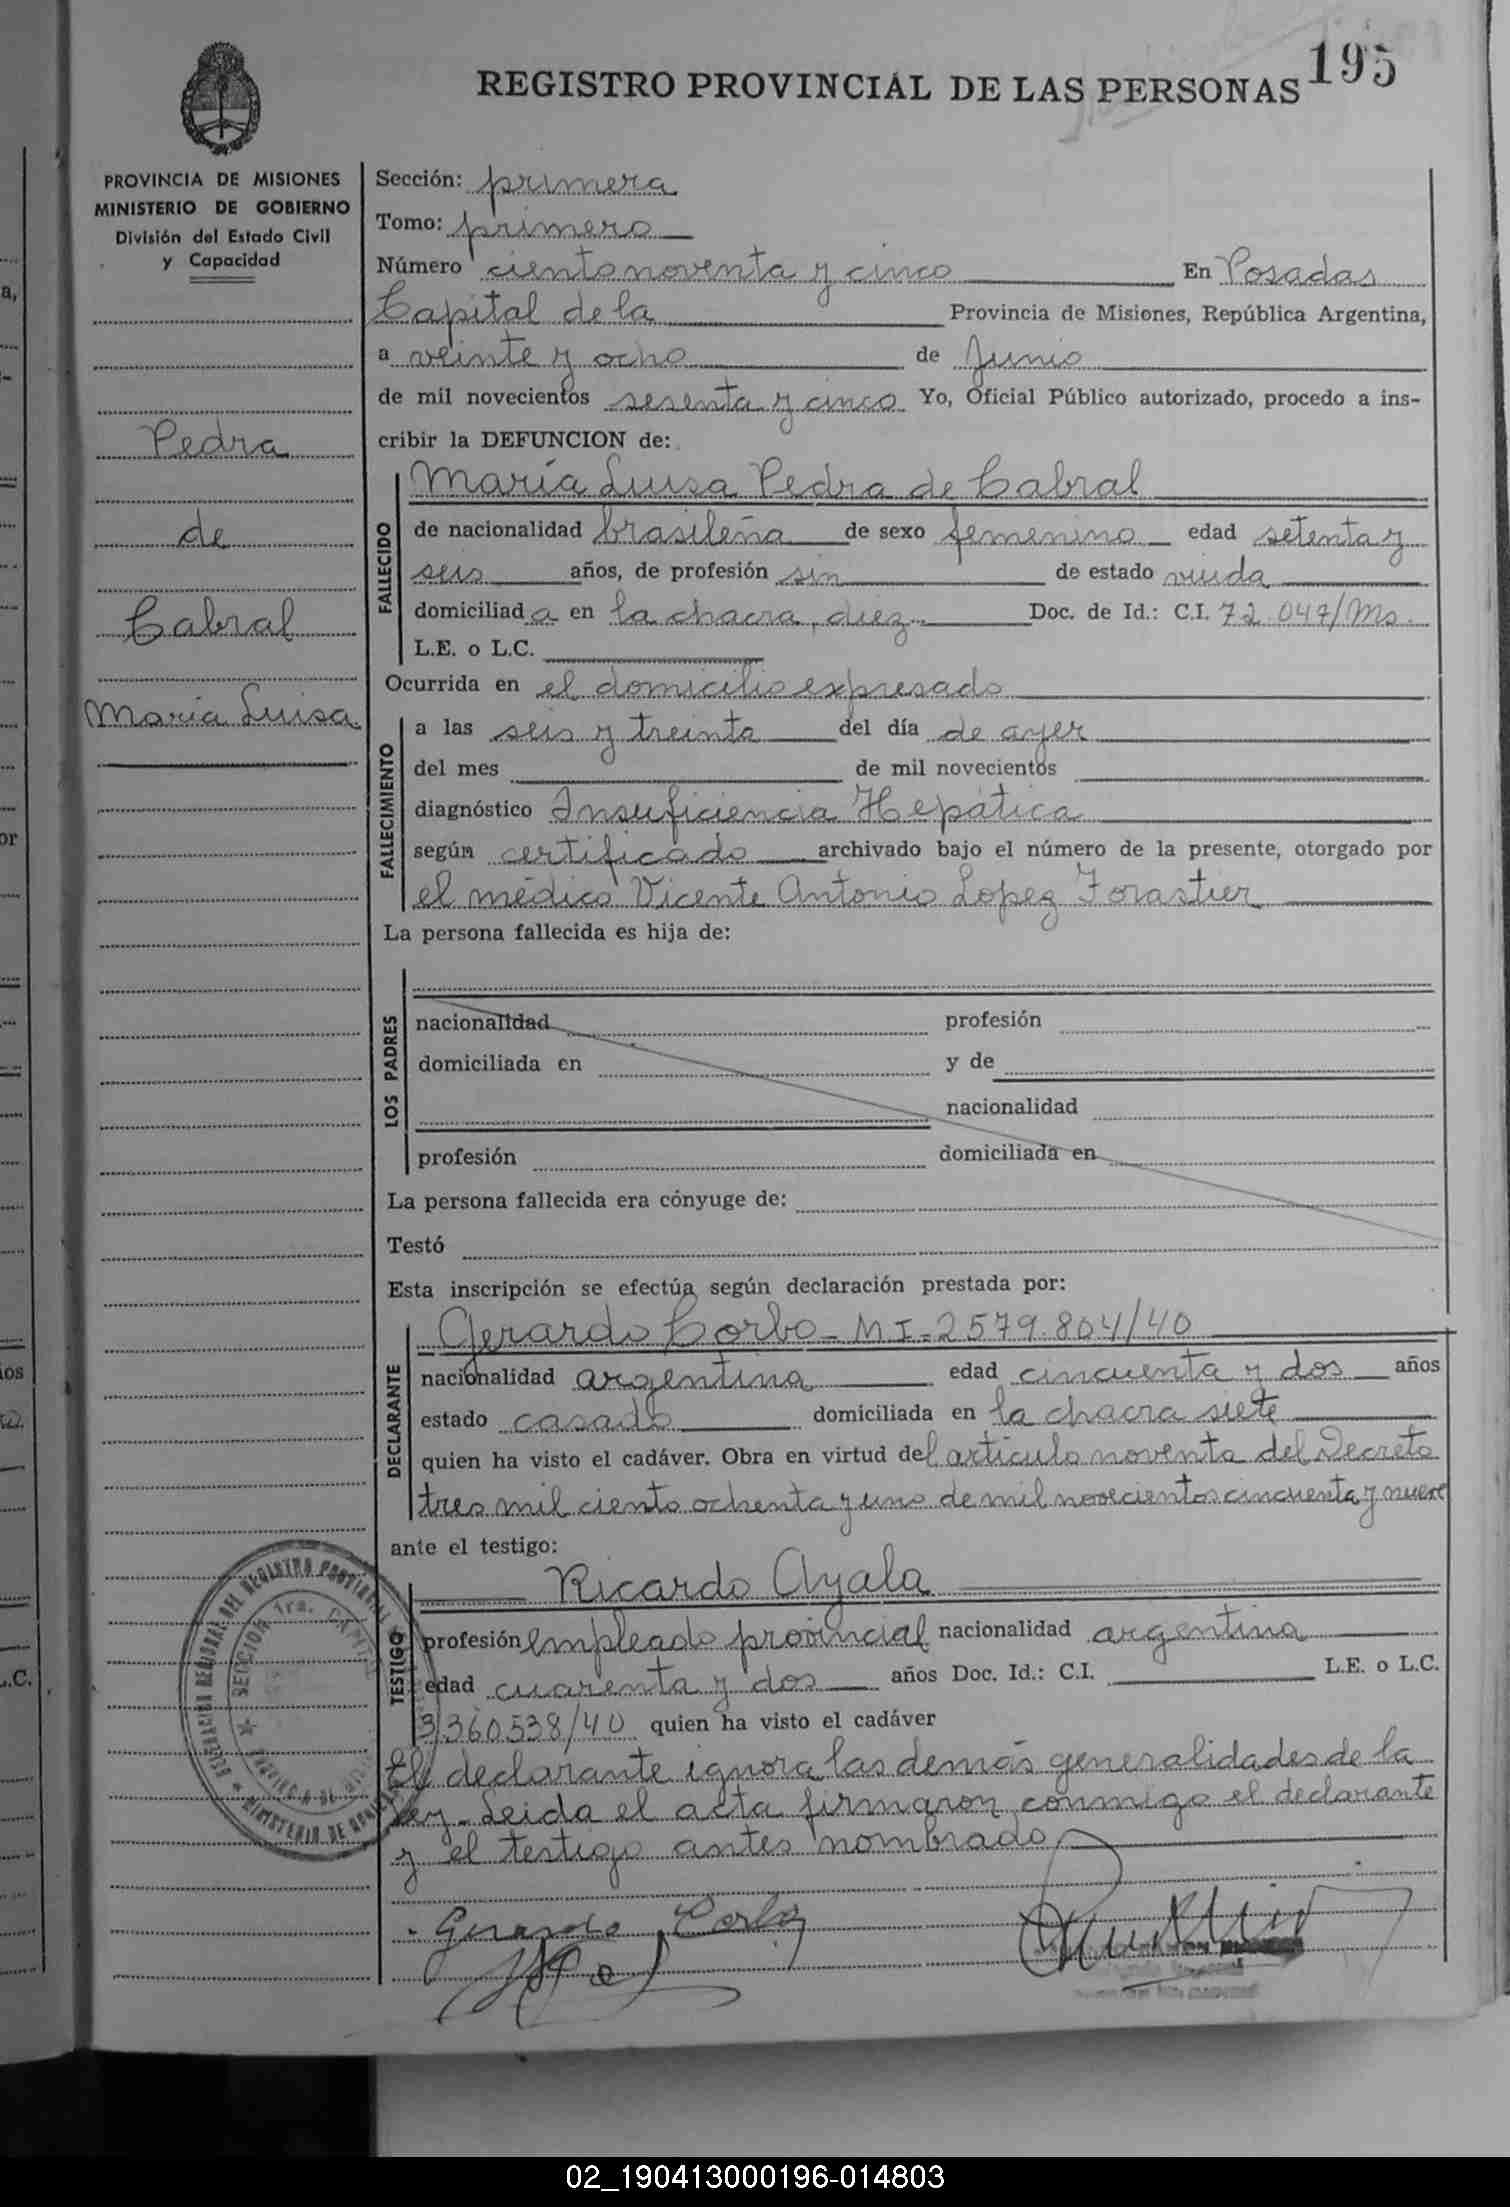 195
REGISTRO PROVINCIAL DE LAS PERSONAS
PROVINCIA DE MISIONES
MINISTERIO DE GOBIERNO
División del Estado Civil
y Capacidad
Pedra
de
Cabral
María Luisa
Sección: primera
Tomo: primero
Número ciento noventa y cinco En Posadas
Capital de la Provincia de Misiones, República Argentina,
a veinte y ocho de Junio
de mil novecientos sesenta y cinco Yo, Oficial Público autorizado, procedo a ins-
cribir la DEFUNCION de:
FALLECIDO
María Luisa Pedra de Cabral
de nacionalidad brasileña de sexo femenino edad setenta y
seis años, de profesión sin de estado viuda
domiciliada en la chacra, diez Doc. de Id.: C.I. 72.047/Ms.
L.E. o L.C.
Ocurrida en el domicilio expresado
FALLECIMIENTO
a las seis y treinta del día de ayer
del mes de mil novecientos
diagnóstico Insuficiencia Hepática
según certificado archivado bajo el número de la presente, otorgado por
el médico Vicente Antonio Lopez Forastier
La persona fallecida es hija de:
LOS PADRES
nacionalidad profesión
domiciliada en y de
nacionalidad
profesión domiciliada en
La persona fallecida era cónyuge de:
Testó
Esta inscripción se efectúa según declaración prestada por:
DECLARANTE
Gerardo Corbo - MI = 2579.804/40
nacionalidad argentina edad cincuenta y dos años
estado casado domiciliada en la chacra siete
quien ha visto el cadáver. Obra en virtud del artículo noventa del Decreto
tres mil ciento ochenta y uno de mil novecientos cincuenta y nueve
ante el testigo:
TESTIGO
Ricardo Ayala
profesión empleado provincial nacionalidad argentina
edad cuarenta y dos años Doc. Id.: C.I. L.E. o L.C.
3360.538/40 quien ha visto el cadáver
El declarante ignora las demás generalidades de la
ley. Leida el acta firmaron conmigo el declarante
y el testigo antes nombrado
Gerardo Corbo
SECCION 1ra. CAPITAL
MINISTERIO DE
02_190413000196-014803